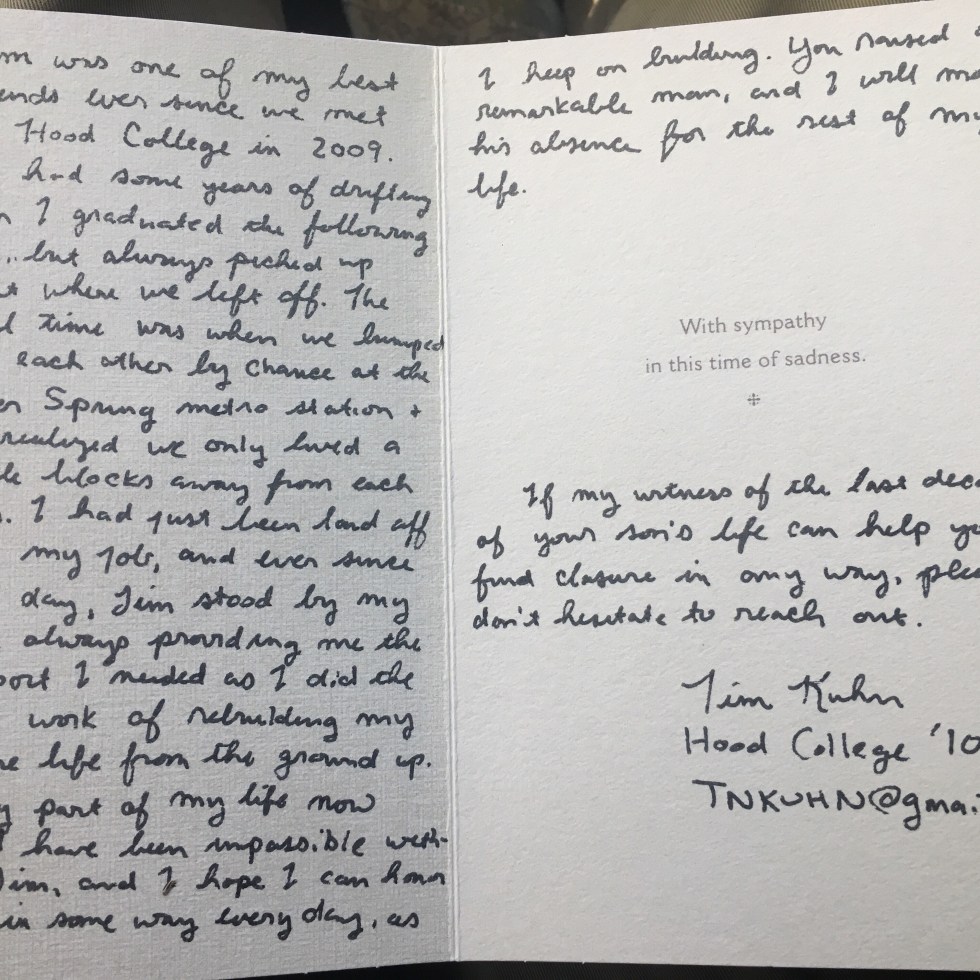 was one of my best
ends ever since we met
Hood College in 2009.
had some years of drifting
I graduated the following
but always picked up
where we left off. The
time was when we bumped
each other by chance at the
Spring metro station +
realized we only lived a
blocks away from each
I had just been laid off
my job, and ever since
day, Jim stood by my
always providing me the
port I needed as I did the
work of rebuilding my
life from the ground up.
part of my life now
I have been impossible with-
Jim, and I hope I can honor
in some way every day, as
I keep on building. You raised a
remarkable man, and I will m
his absence for the rest of my
life.
With sympathy
in this time of sadness.
If my witness of the last deca
of your son's life can help yo
find closure in any way, plea
don't hesitate to reach out.
Tim Kuhn
Hood College '10
TNKUHN@gmai